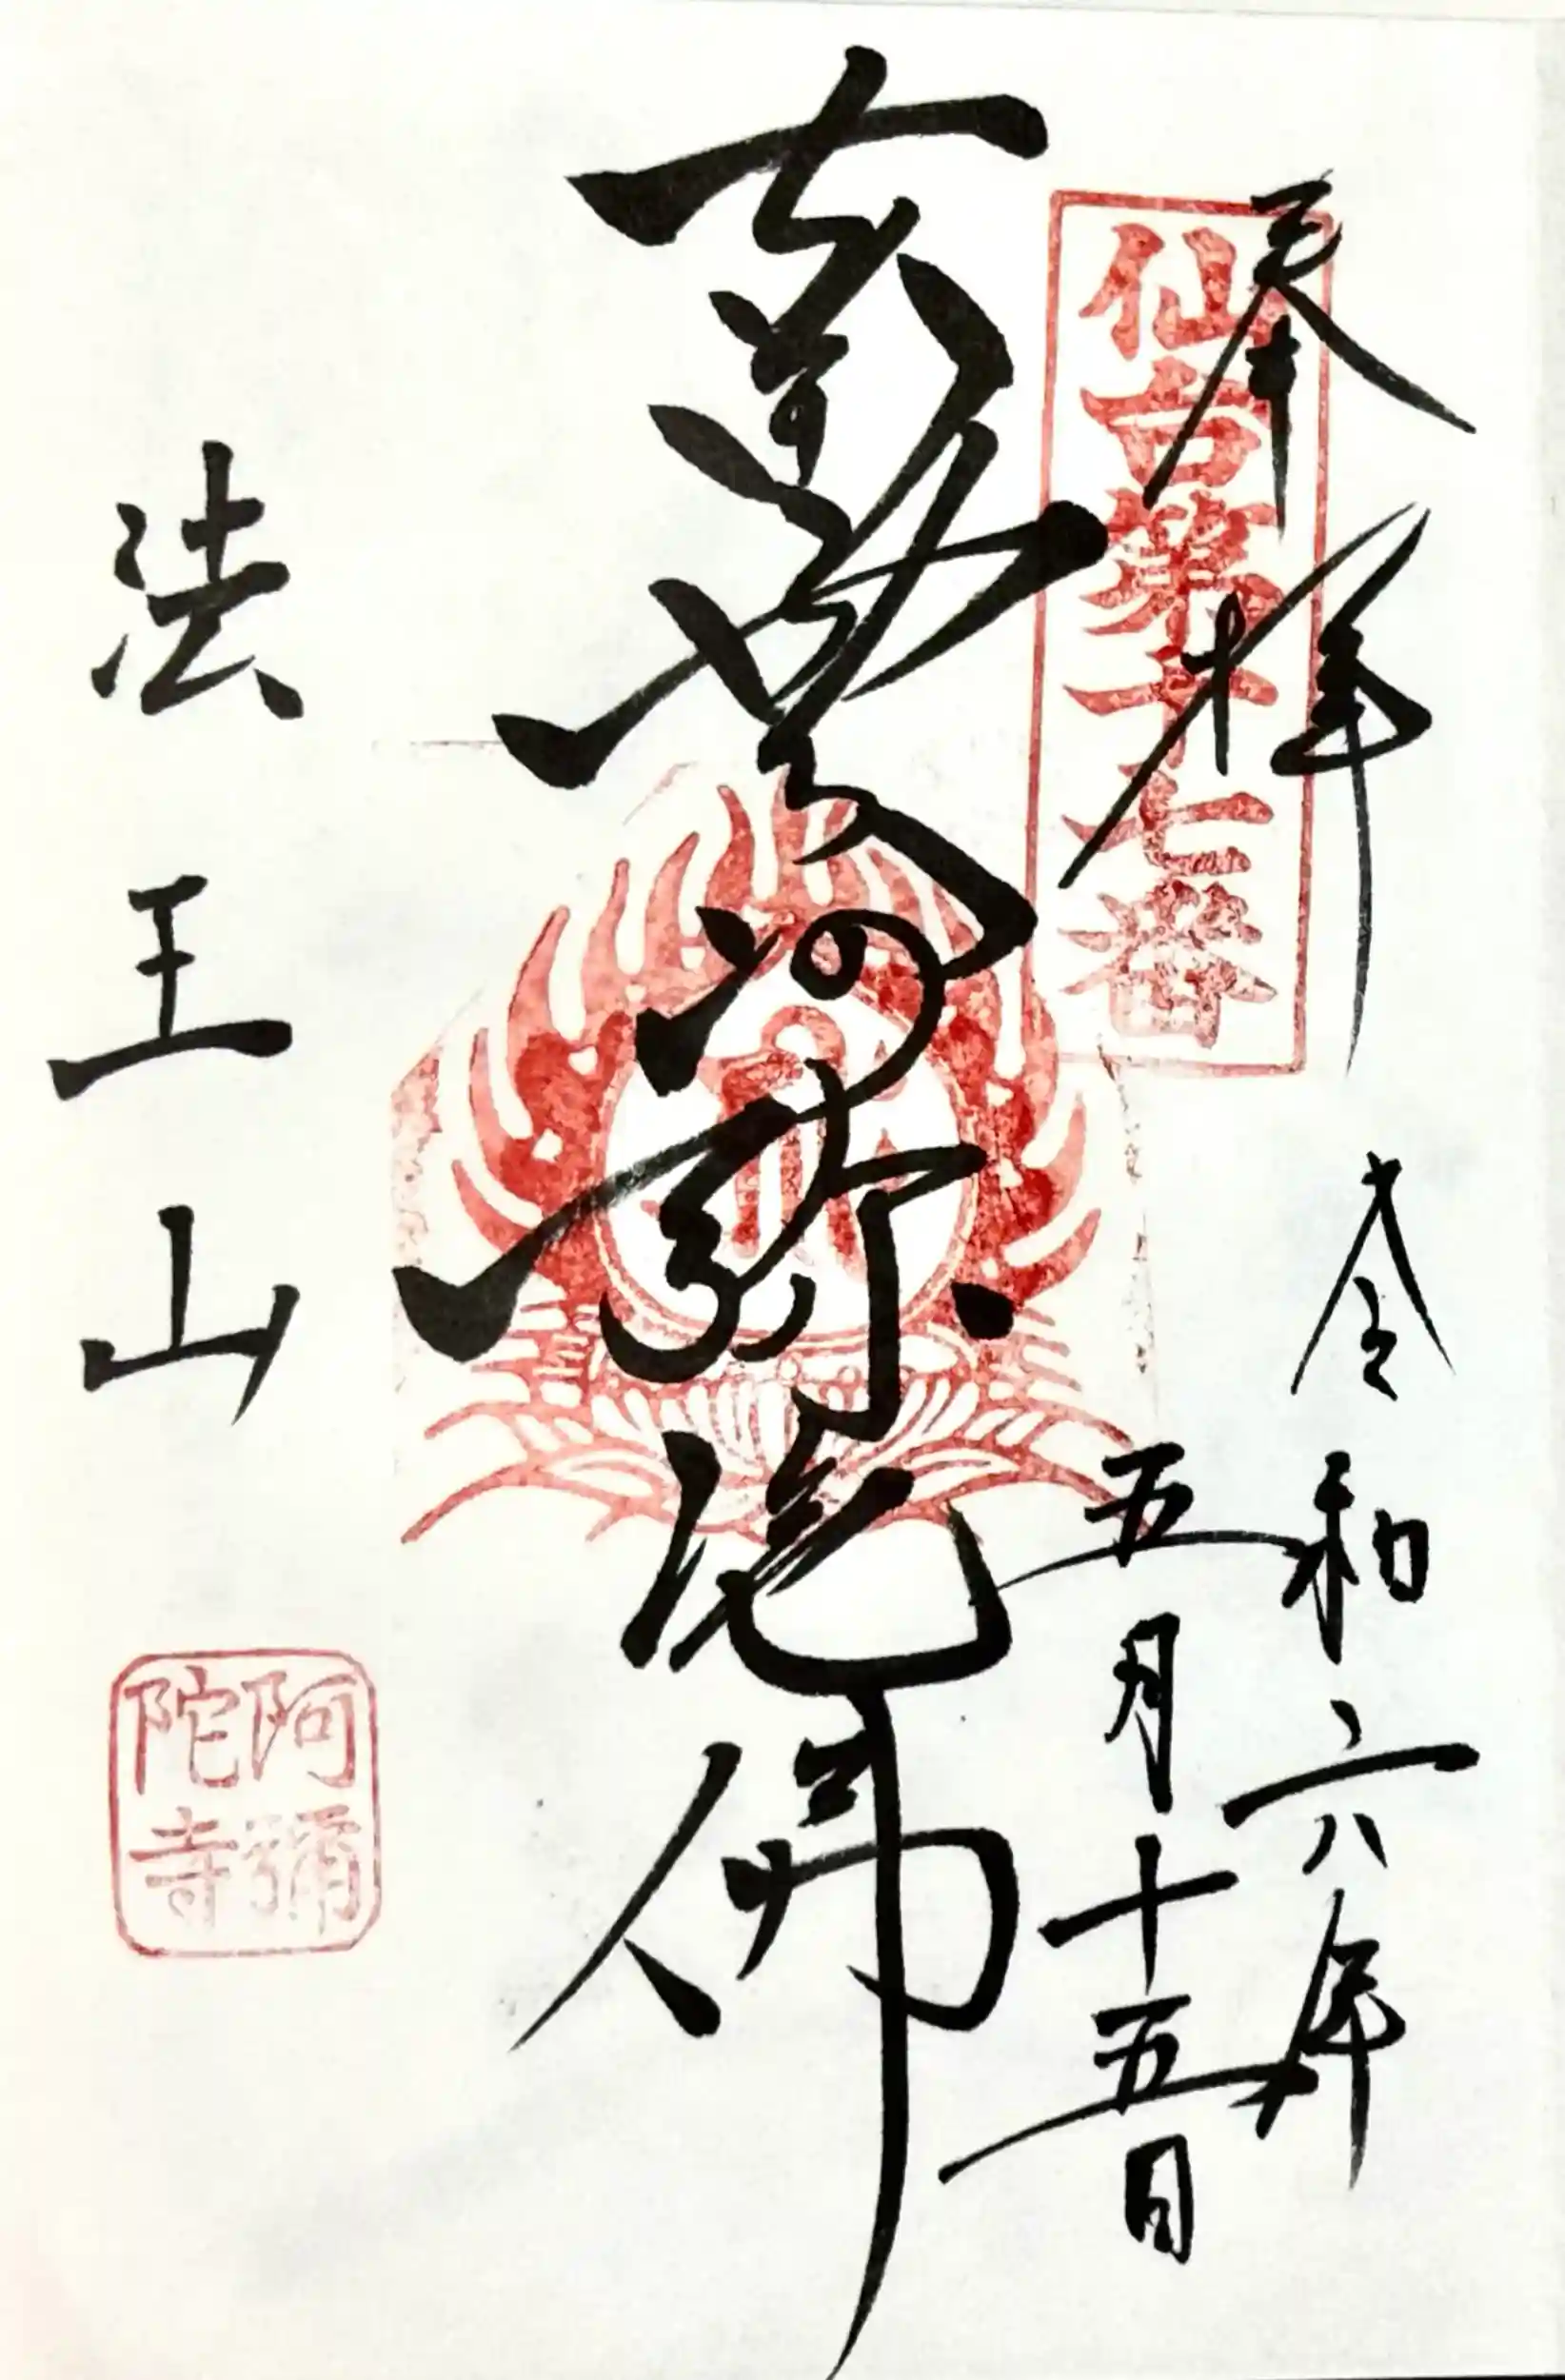 奉拝
仙台第十七番
令和六年
五月十五日
南無阿弥陀佛
法王山
阿彌
陀寺